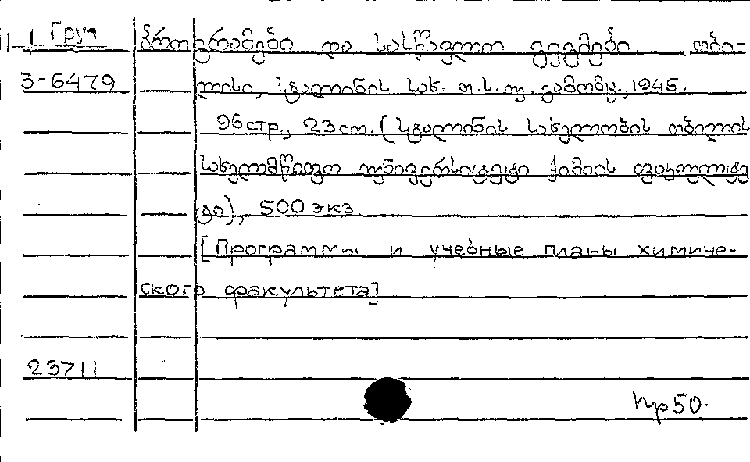 1 Груз პროგრამები და სასწავლო გეგმები. თბი-
3-6479 ლისი, სტალინის სახ. თ.ს.უ. გამომც., 1945.
96 стр., 23 cm. (სტალინის სახელობის თბილის
სახელმწიფო უნივერსიტეტი ქიმიის ფაკულტე
ტი), 500 экз.
[Программы и учебные планы химиче-
ского факультета]
23711
Нр 50.